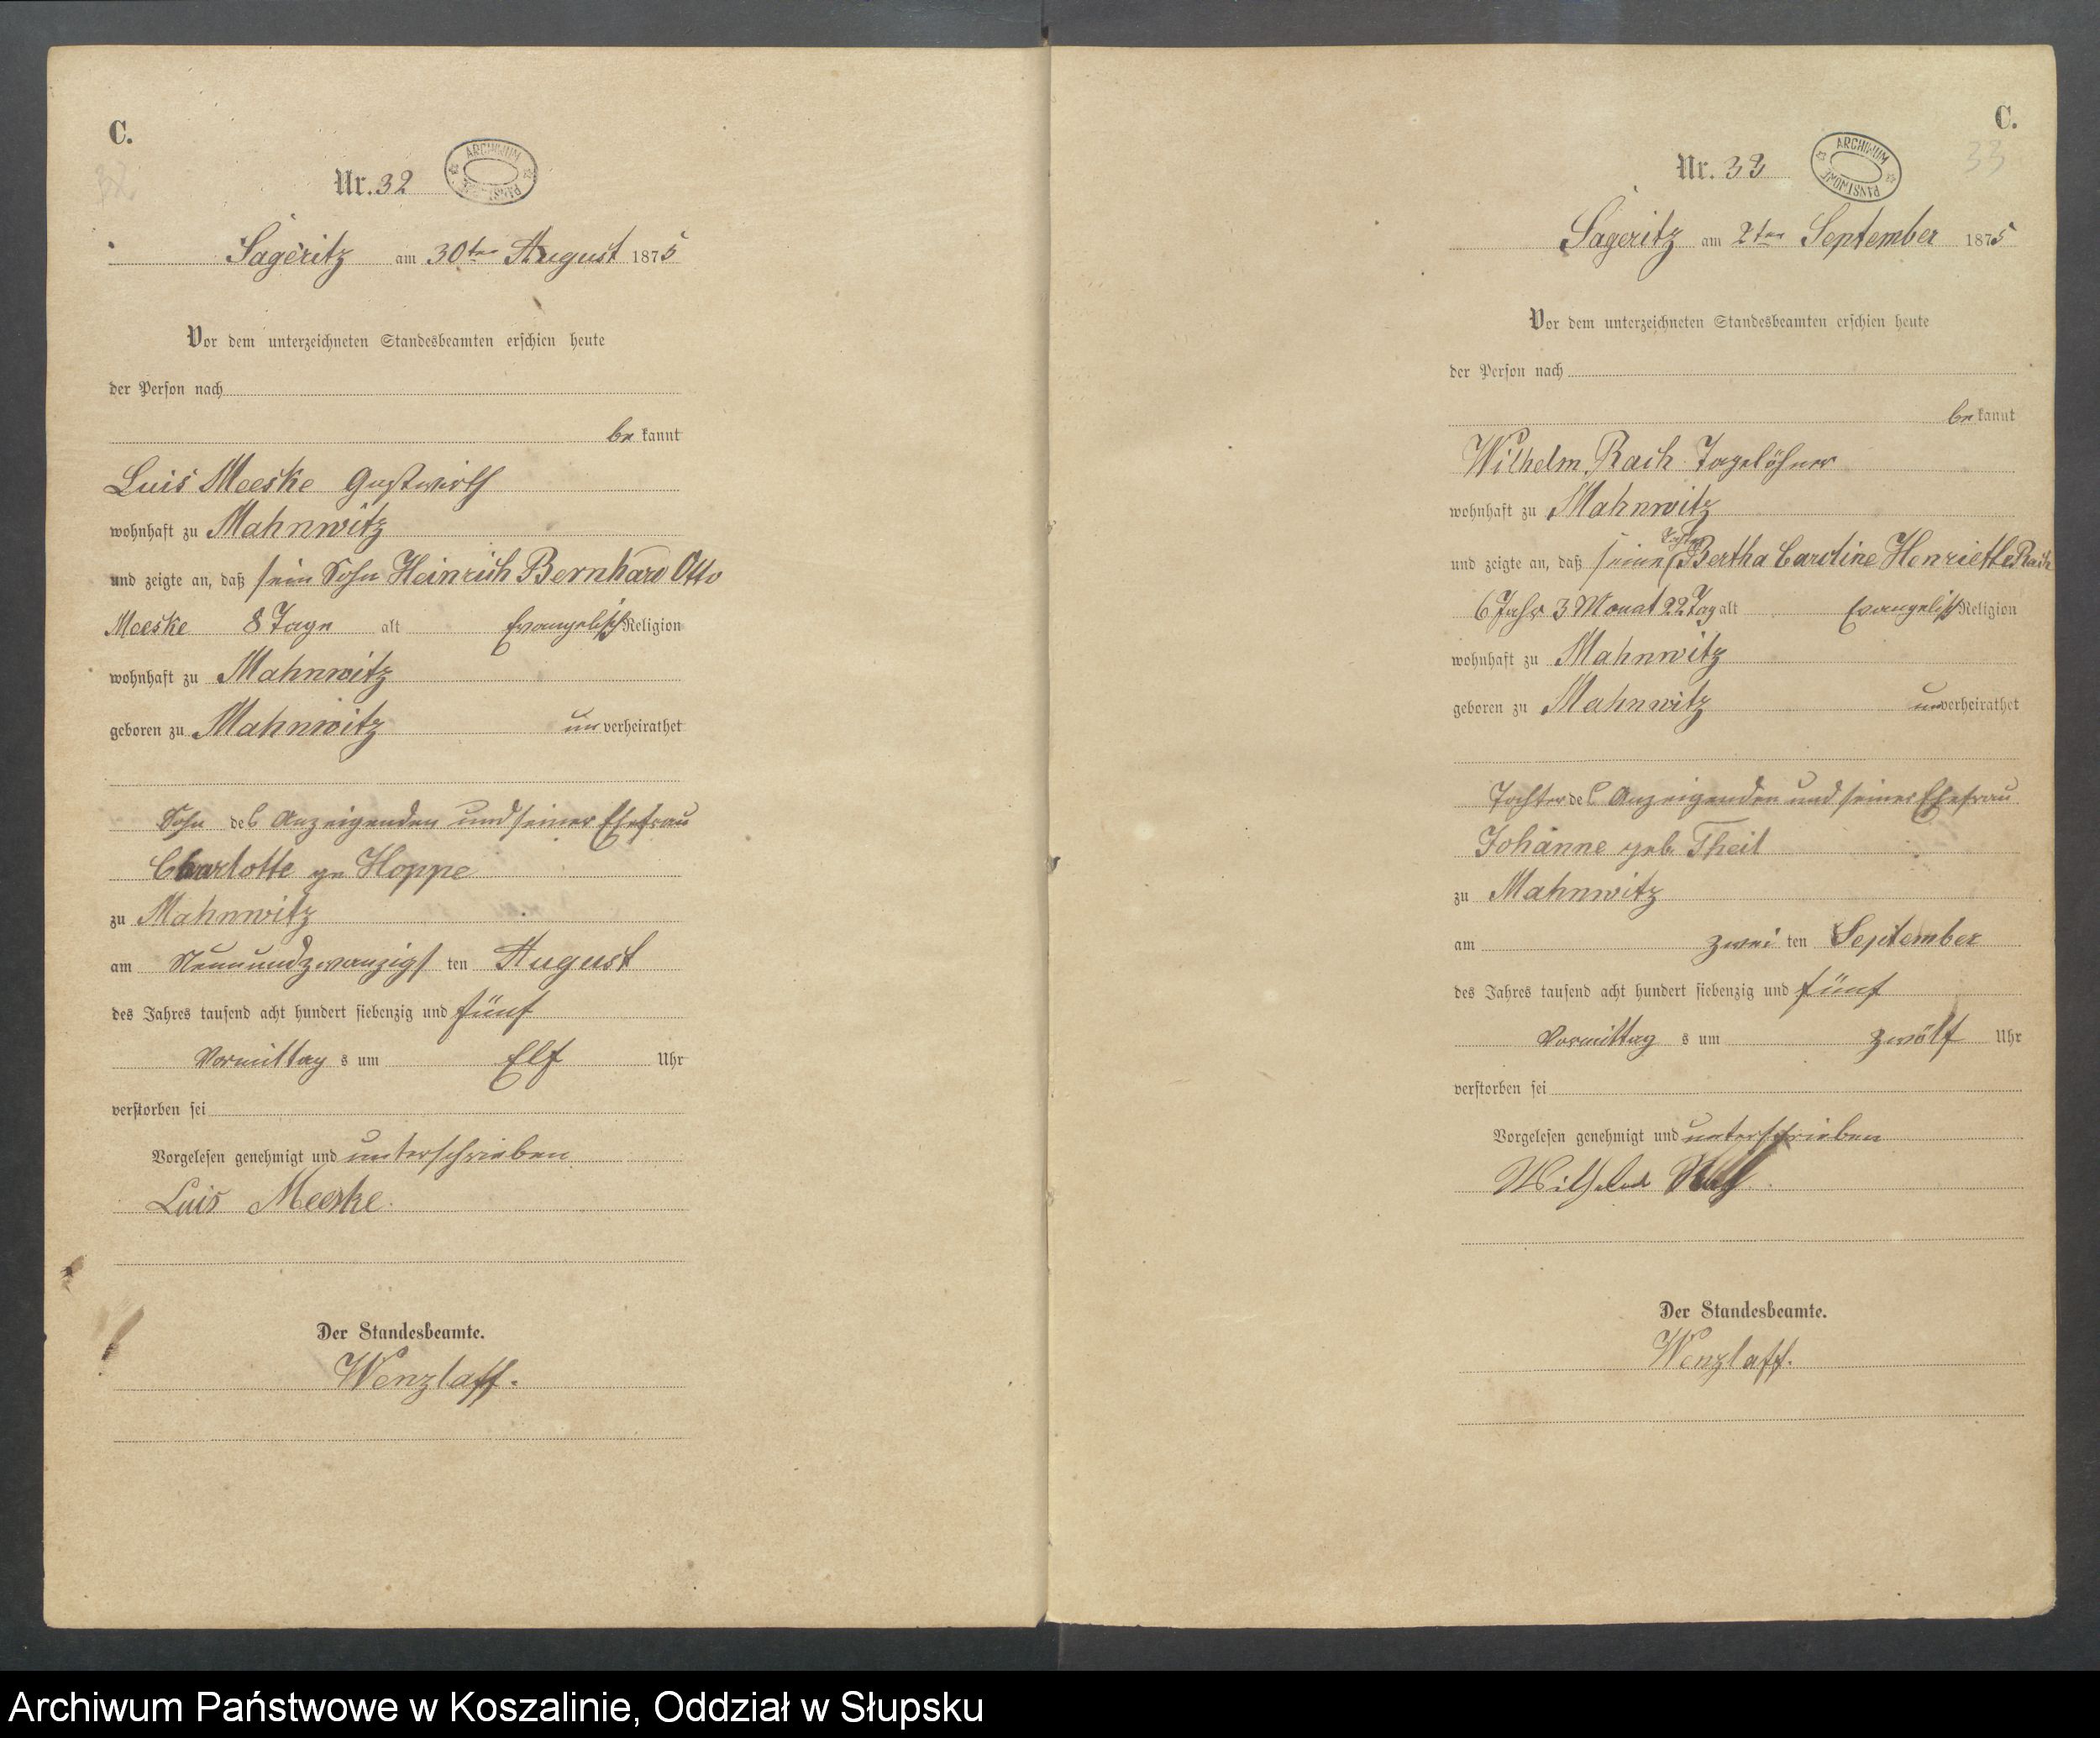 C.
32
Nr. 32
ARCHIWUM PAŃSTWOWE
Sageritz am 30ten August 1875
Vor dem unterzeichneten Standesbeamten erschien heute
der Person nach
be kannt
Luis Meeske Gastwirth
wohnhaft zu Mahnwitz
und zeigte an, daß sein Sohn Heinrich Bernhard Otto
Meeske 8 Tage alt Evangelisch Religion
wohnhaft zu Mahnwitz
geboren zu Mahnwitz un verheirathet
Sohn des Anzeigenden und seiner Ehefrau
Charlotte ge Hoppe
zu Mahnwitz
am Neunundzwanzigs ten August
des Jahres tausend acht hundert siebenzig und fünf
Vormittag s um Elf Uhr
verstorben sei
Vorgelesen genehmigt und unterschrieben
Luis Meeske.
Der Standesbeamte.
Wenzlaff.
C.
33
Nr. 33
ARCHIWUM PAŃSTWOWE
Sageritz am 2ten September 1875
Vor dem unterzeichneten Standesbeamten erschien heute
der Person nach
be kannt
Wilhelm Rach Tagelöhner
wohnhaft zu Mahnwitz
und zeigte an, daß seine Tochter Bertha Caroline Henriette Rach
6 Jahr 3 Monat 22 Tag alt Evangelisch Religion
wohnhaft zu Mahnwitz
geboren zu Mahnwitz unverheirathet
Tochter des Anzeigenden und seiner Ehefrau
Johanne geb. Theil
zu Mahnwitz
am zwei ten September
des Jahres tausend acht hundert siebenzig und fünf
Vormittag s um zwölf Uhr
verstorben sei
Vorgelesen genehmigt und unterschrieben
Wilhelm
Der Standesbeamte.
Wenzlaff.
Archiwum Państwowe w Koszalinie, Oddział w Słupsku